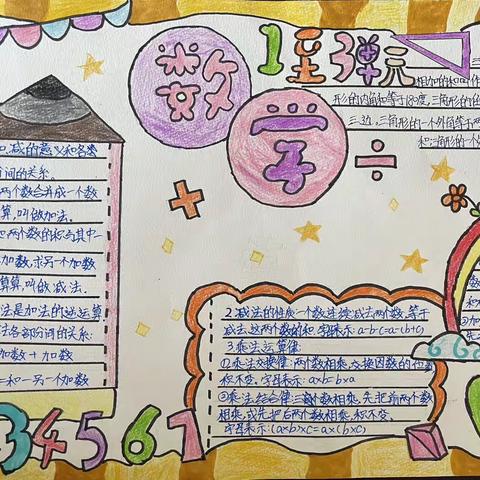 数学
1至3单元
减的意义和各
间的关系.
两个数合并成一个数
算,叫做加法.
两个数的和与其中一
加数,求另一个加数
算,叫做减法.
法是加法的逆运算
法各部分间的关系:
加数+加数
=和-另一个加数
相加的和叫作
形的内角和等于180度,三角形的任
三边,三角形的一个外角等于两
2.减法的性质一个数连续减去两个数,等于
减去这两个数的和.字母示:a-b-c=a-(b+c)
3.乘法运算律
①乘法交换律:两个数相乘,交换因数的位置
积不变.字母表示:a×b=b×a
②乘法结合律三个数相乘,先把前两个数
相乘,或先把后两个数相乘,积不变.
字母表示:(a×b)×c=a×(b×c)
34567